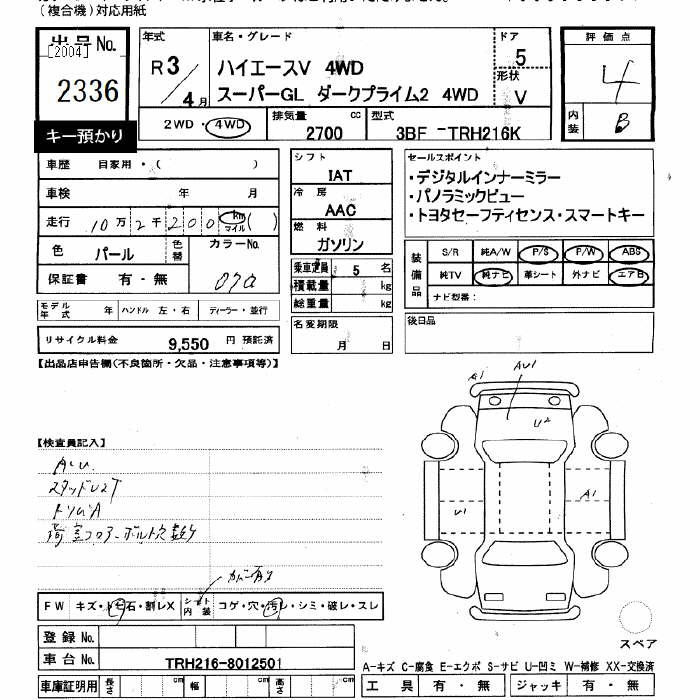 (複合機)対応用紙
出品No.
[2004]
2336
キー預かり
年式
R3/4月
車名・グレード
ハイエースV 4WD
スーパーGL ダークプライム2 4WD
ドア
5
形状
V
評価点
4
内装
B
2WD・4WD
排気量
2700 cc
型式
3BF -TRH216K
車歴 自家用・( )
車検 年 月
走行 10万2千200 km マイル ( )
色 パール 色替
カラーNo.
070
保証書 有・無
シフト
IAT
冷房
AAC
燃料
ガソリン
乗車定員 5 名
積載量 kg
総重量 kg
セールスポイント
・デジタルインナーミラー
・パノラミックビュー
・トヨタセーフティセンス・スマートキー
装備品
S/R 純A/W P/S P/W ABS
純TV 純ナビ 革シート 外ナビ エアB
ナビ型番:
モデル年式 年 ハンドル 左・右 ディーラー・並行
リサイクル料金 9,550 円 預託済
名変期限
月 日
後日品
【出品店申告欄(不良箇所・欠品・注意事項等)】
A1
AU1
U2
A1
U1
【検査員記入】
AU.
スタッドレスT
トリムA
荷室フロアーボルト欠品
FW キズ・トビ石・割レX シート内装 コゲ・穴・汚レ・シミ・破レ・スレ
登録No.
車台No. TRH216-8012501
車庫証明用 長さ cm 幅 cm 高さ cm
スペア
A-キズ C-腐食 E-エクボ S-サビ U-凹ミ W-補修 XX-交換済
工具 有・無 ジャッキ 有・無